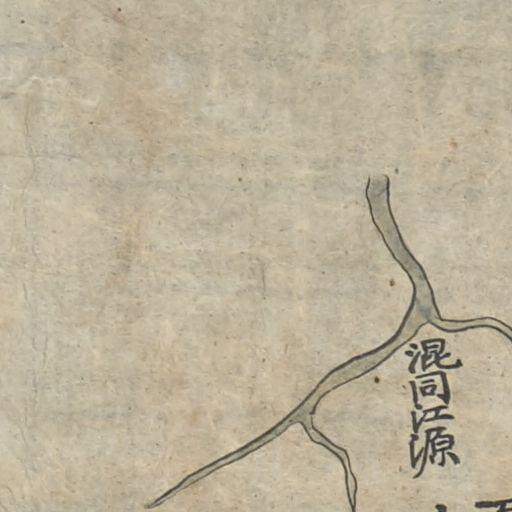 混同江源